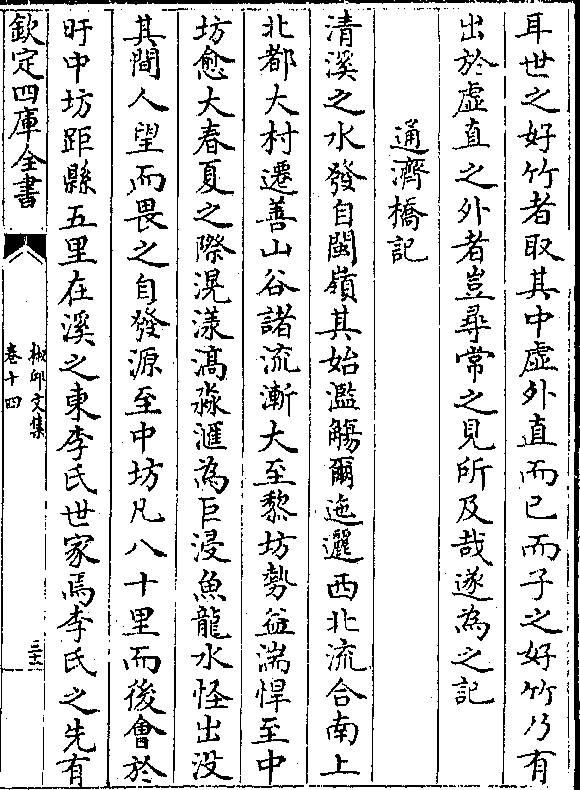 耳世之好竹者取其中虚外直而已而子之好竹乃有
出於虚直之外者豈尋常之見所及哉遂為之記
通濟橋記
清溪之水發自閩嶺其始濫觴爾迤邐西北流合南上
北都大村遷善山谷諸流漸大至黎坊勢益湍悍至中
坊愈大春夏之際滉漾滈淼滙為巨浸魚龍水怪出没
其間人望而畏之自發源至中坊凡八十里而後會於
旴中坊距縣五里在溪之東李氏世家焉李氏之先有
欽定四庫全書
椒邱文集
卷十四